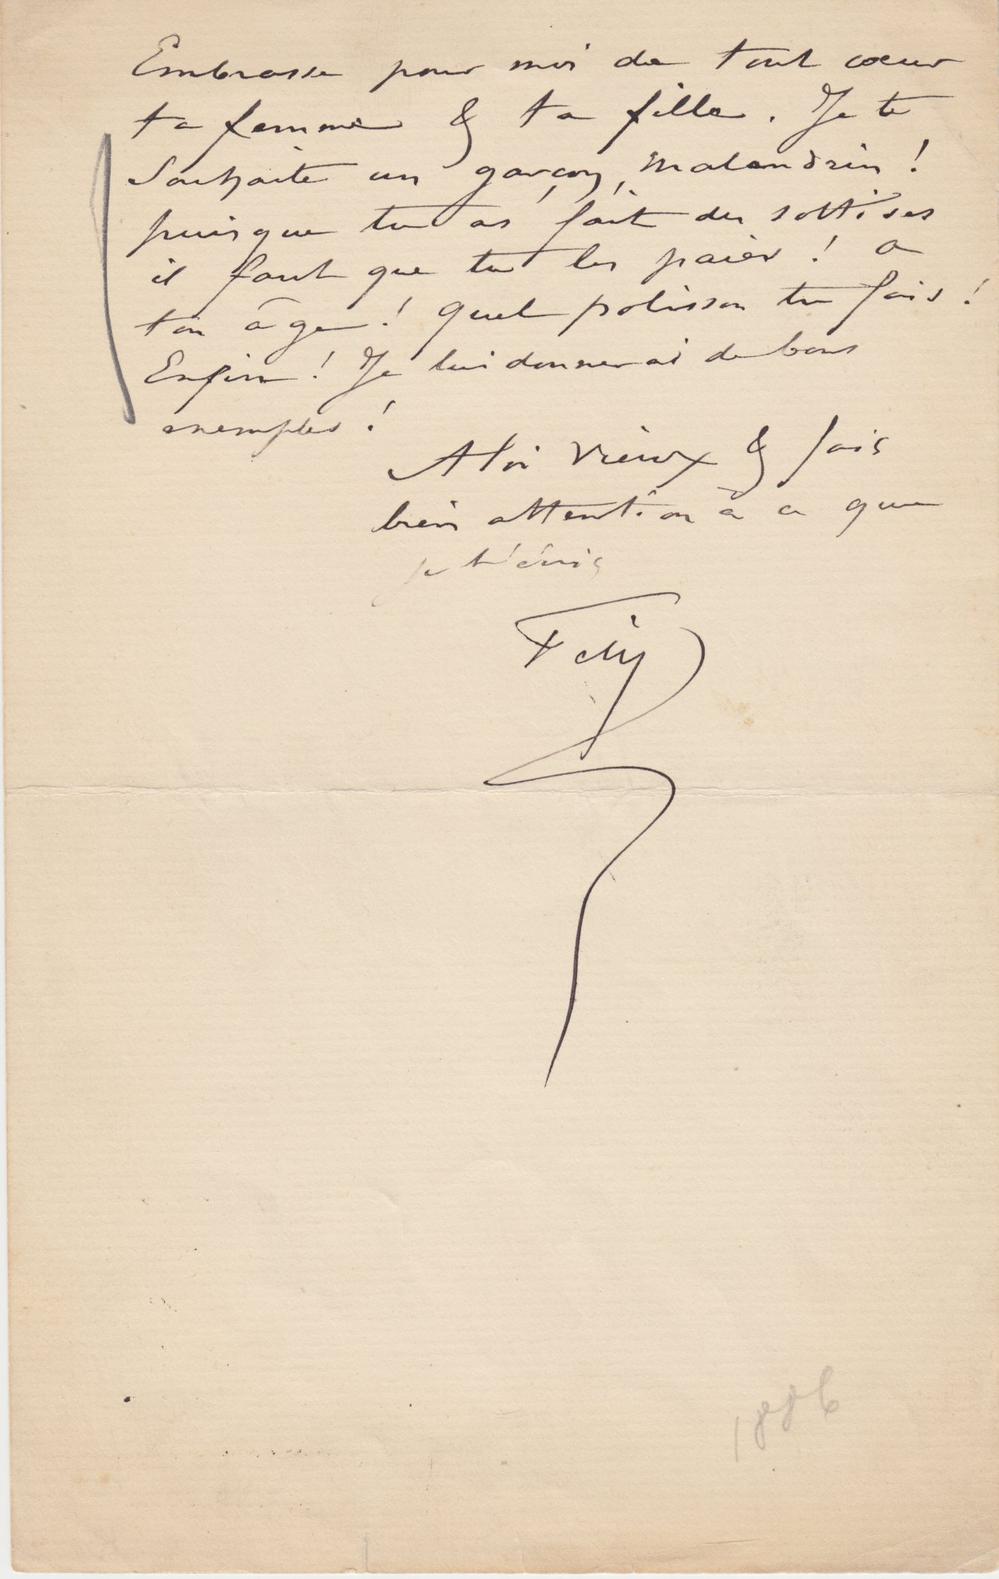 Embrasse pour moi de tout cœur
ta femme & ta fille. Je te
souhaite un garçon, malandrin !
puisque tu as fait des sottises
il faut que tu les paies ! a
ton âge ! quel polisson tu fais !
Enfin ! Je lui donnerai de bons
exemples !
A toi vieux & fais
bien attention à ce que
je t'écris
Fély
1886